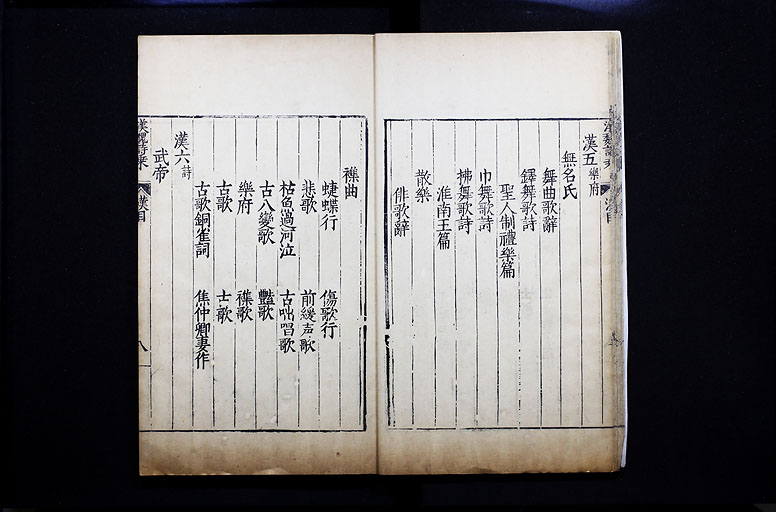 漢五樂府
無名氏
舞曲歌辭
鐸舞歌詩
聖人制禮樂篇
巾舞歌詩
拂舞歌詩
淮南王篇
散樂
俳歌辭
襍曲
蜨蝶行 傷歌行
悲歌 前緩声歌
枯魚過河泣 古咄唶歌
古八變歌 豔歌
樂府 襍歌
古歌 古歌
古歌銅雀詞 焦仲卿妻作
漢六詩
武帝
漢魏詩乗 漢目 八